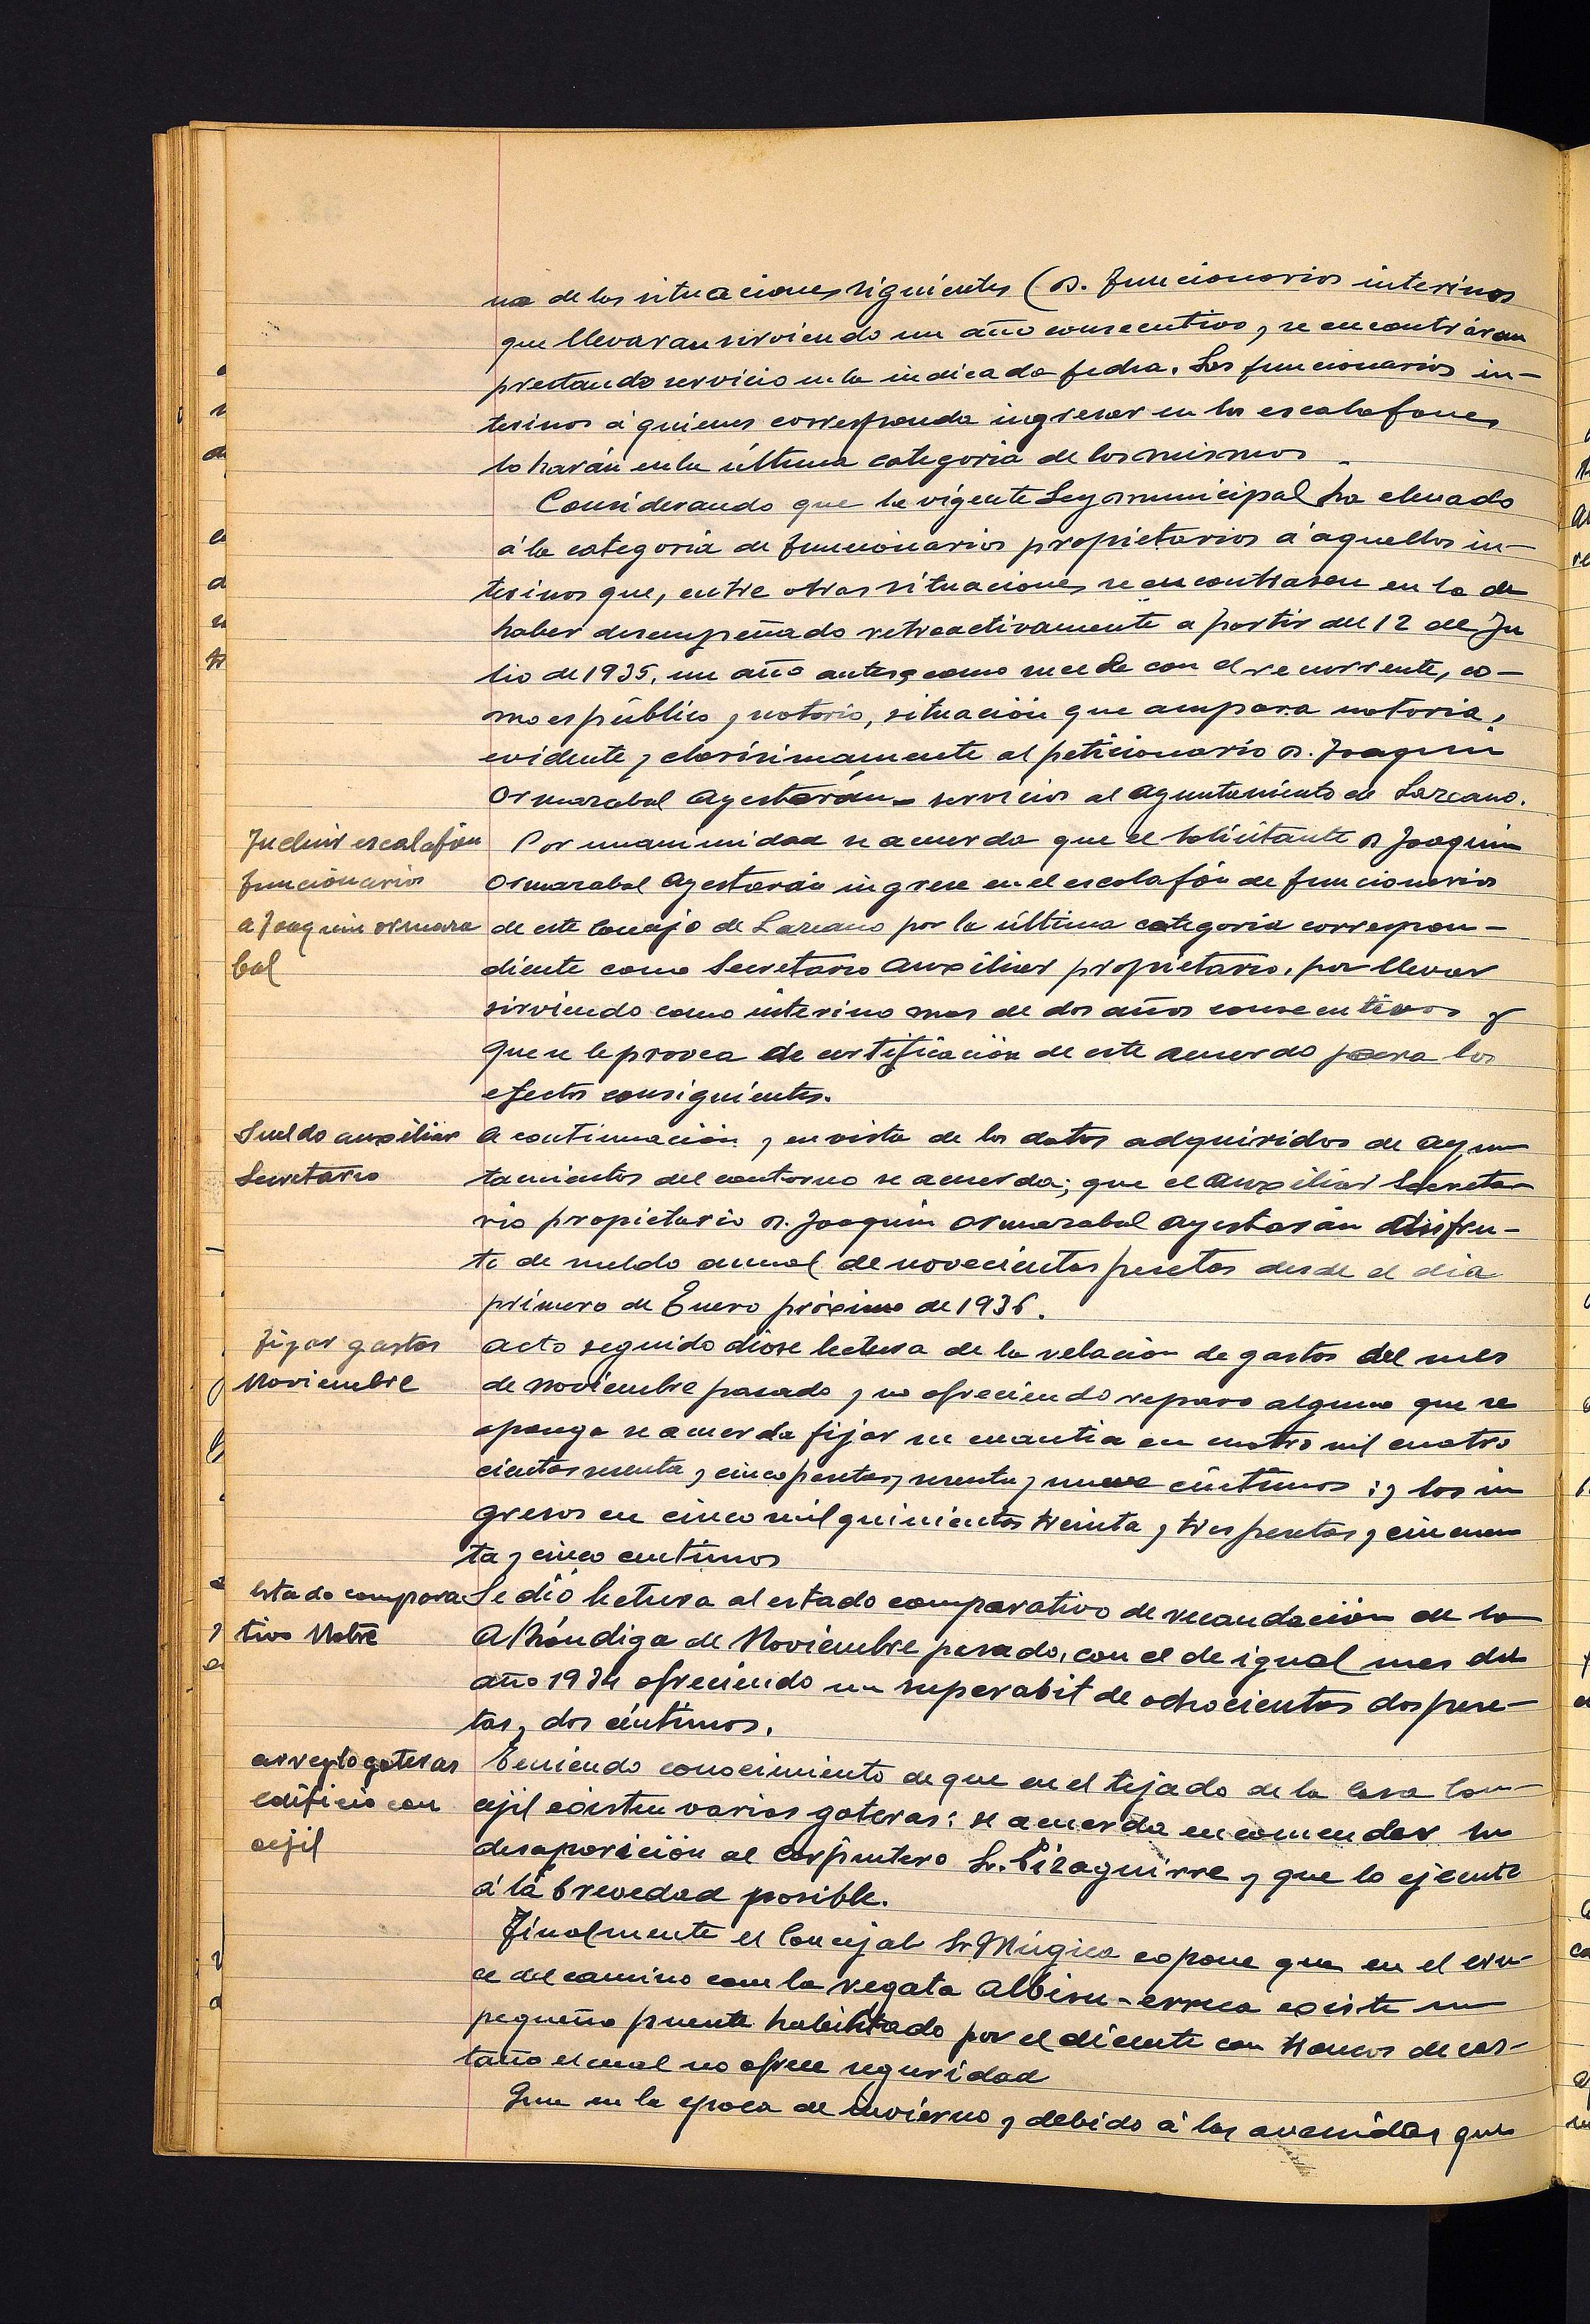 na de las situaciones siguientes (B. Funcionarios interinos
que llevaran sirviendo un año consecutivo, y se encontráran
prestando servicio en la indicada fecha. Los funcionarios in-
terinos á quienes corresponda ingresar en los escalafones
lo harán en la última categoria de los mismos.
Considerando que la vigente Ley municipal ha elevado
á la categoria de funcionarios propietarios á aquellos in-
terinos que, entre otras situaciones se encontrasen en la de
haber desempeñado retroactivamente a partir del 12 de Ju
lio de 1935, un año antes, como sucede con el recurrente, co-
mo es público y notorio, situación que ampara notoria,
evidente y clarisimamente al peticionario D. Joaquin
Ormazabal Ayestarán servicios al Ayuntamiento de Lazcano.
Incluir escalafón
funcionarios
a Joaquin Ormaza
bal
Por unanimidad se acuerda que el solicitante D Joaquin
Ormazabal Ayestarán ingrese en el escalafón de funcionarios
de este Concejo de Lazcano por la última categoria correspon-
diente como Secretario Auxiliar propietario, por llevar
sirviendo como interino mas de dos años consecutivos y
que se le provea de certificación de este acuerdo para los
efectos consiguientes.
Sueldo auxiliar
Secretario
A continuación y en vista de los datos adquiridos de Ayun
tamientos del contorno se acuerda; que el Auxiliar Secreta
rio propietario D. Joaquin Ormazabal Ayestarán disfru-
te de sueldo anual de novecientas pesetas desde el dia
primero de Enero próximo de 1936.
Fijar gastos
Noviembre
Acto seguido diose lectura de la relación de gastos del mes
de Noviembre pasado y no ofreciendo reparo alguno que se
oponga se acuerda fijar su cuantia en cuatro mil cuatro
cientas sesenta y cinco pesetas y sesenta y nueve céntimos: y los in
gresos en cinco mil quinientas treinta y tres pesetas y cincuen
ta y cinco centimos
Estado compara
tivo Nbre
Se dió lectura al estado comparativo de recaudación de la
Alhóndiga de Noviembre pasado, con el de igual mes del
año 1934 ofreciendo un superabit de ochocientas dos pese-
tas y dos céntimos.
Arreglo goteras
edificio con
cejil
Teniendo conocimiento de que en el tejado de la Casa Con-
cejil existen varias goteras: se acuerda encomendar su
desaparición al carpintero Sr. Eizaguirre y que lo ejecute
á la brevedad posible.
Finalmente el Concejal Sr Múgica expone que en el cru-
ce del camino con la regata Albisu-erreca existe un
pequeño puente habilitado por el dicente con troncos de cas-
taño el cual no ofrece seguridad
Que en la epoca de invierno y debido á las avenidas que